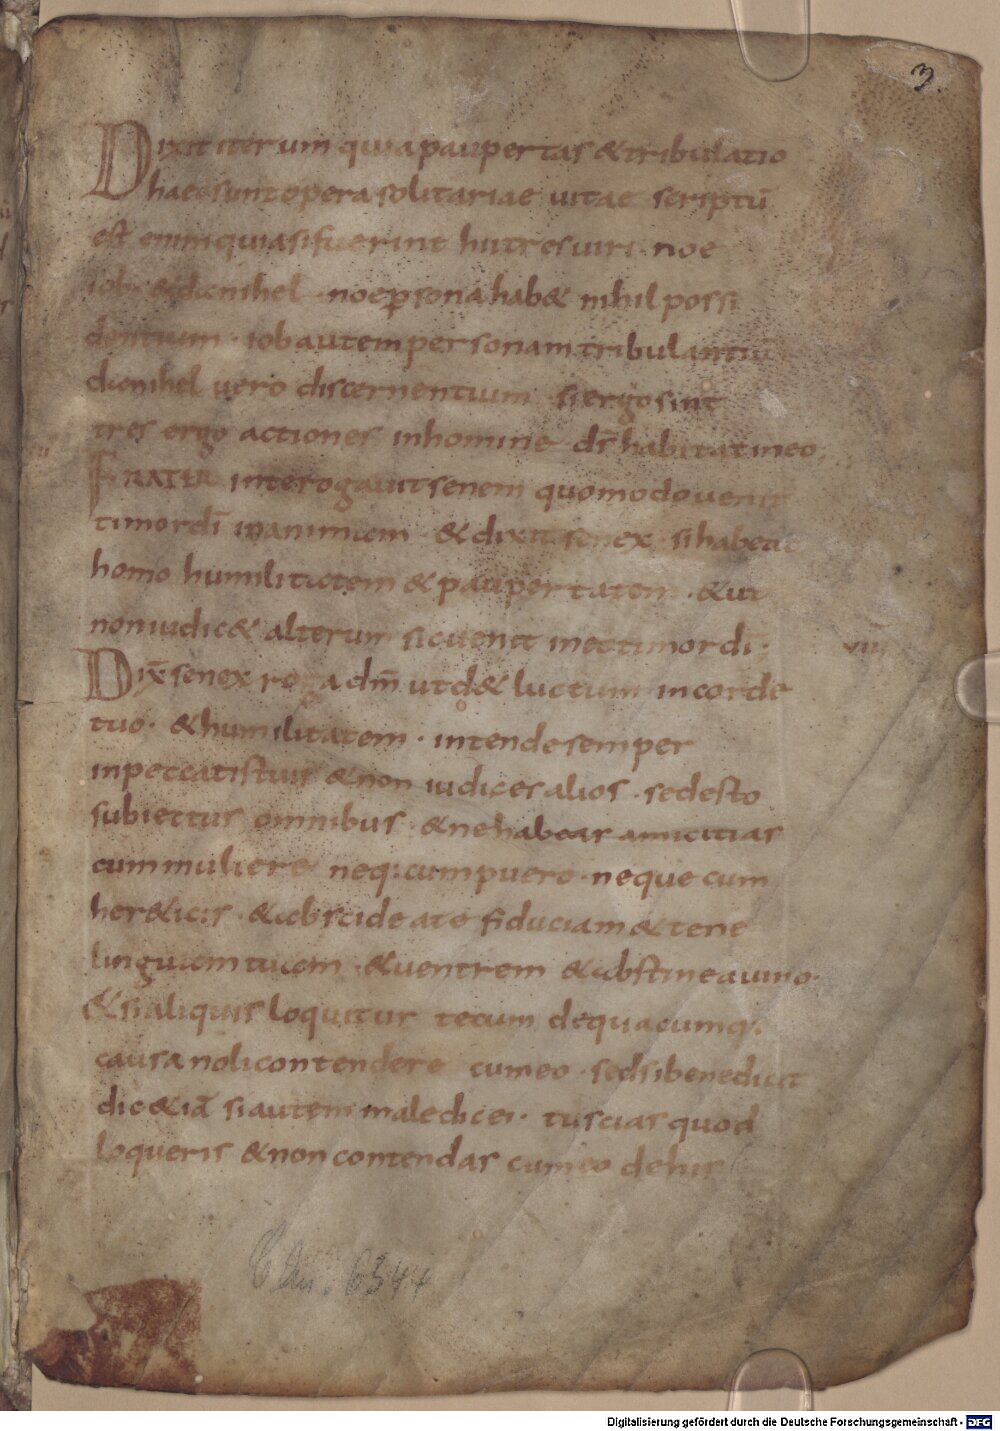 3.
Dixit iterum quia paupertas & tribulatio
haec sunt opera solitariae uitae scriptū
est enim quia si fuerint hii tres uiri · noe
iob · & danihel · noe ꝑsona hab& nihil possi
dentium · iob autem personam tribulantiū
danihel uero discernentium · si ergo sint
tres ergo actiones in homine d̄s habitat in eo;
FRATER interogauit senem quomodo uenit
timor dī in animam · & dixit senex · si habeat
homo humilitatem & paupertatem · & ut
non iudic& alterum sic uenit in et timor dī;
VII
Dix̄ senex roga dm̄ ut d& luctum in corde
tuo · & humilitatem · intende semper
in peccatis tuis & non iudices alios · sed esto
subiectus omnibus · & ne habeas amicitias
cum muliere neq: cum puero · neque cum
her&icis · & abscide a te fiduciam & tene
linguam tuam · & uentrem & abstine a uino ·
& si aliquis loquitur tecum de quacumq:
causa noli contendere cum eo · sed si benedicat
dic &iā si autem male dicei · tu scias quod
loqueris & non contendas cum eo de his
Clm. 6344
Digitalisierung gefördert durch die Deutsche Forschungsgemeinschaft - DFG